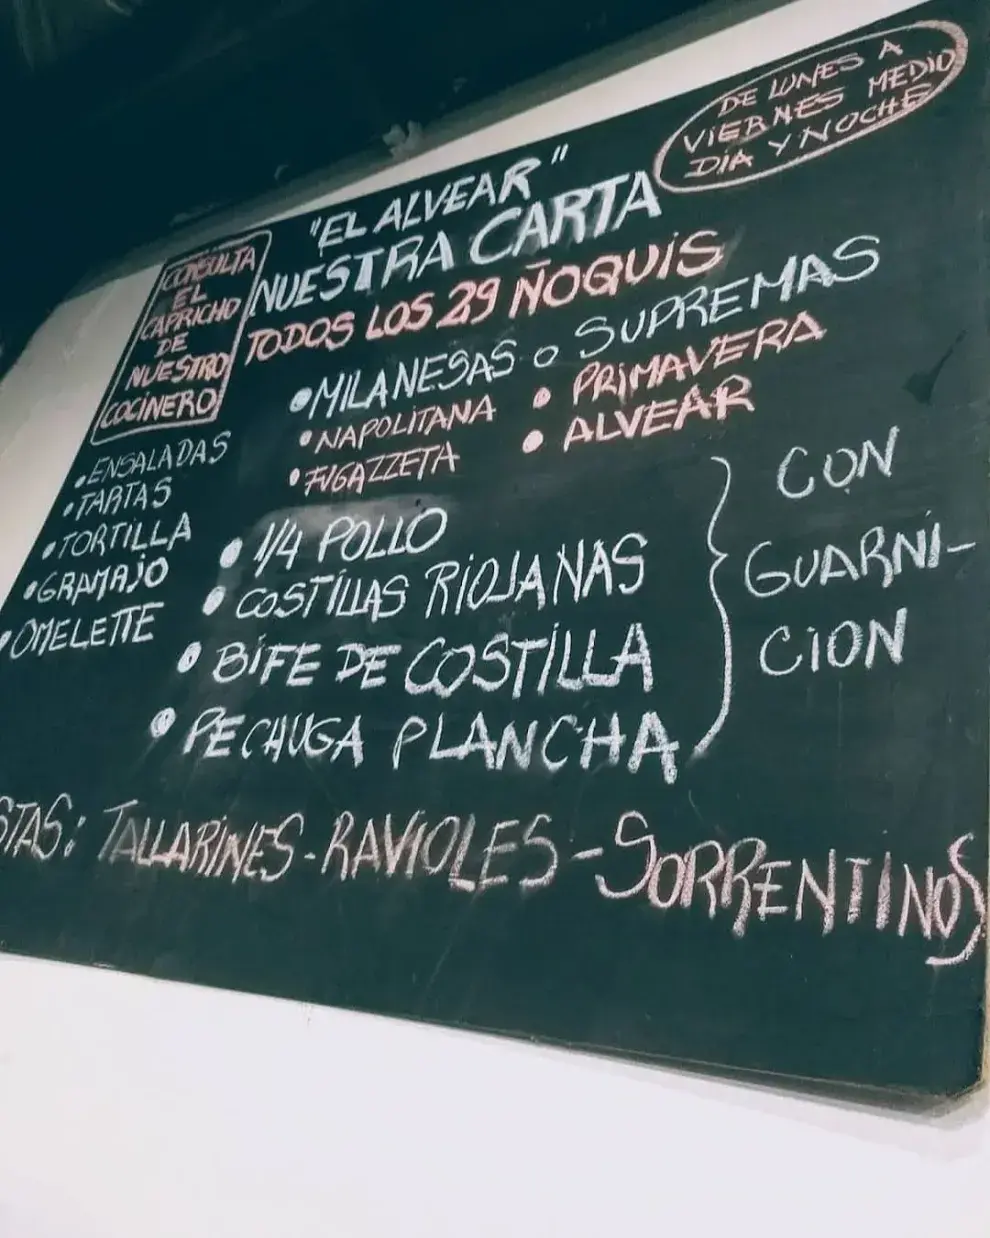 DE LUNES A
VIERNES MEDIO
DIA Y NOCHE
"EL ALVEAR"
NUESTRA CARTA
TODOS LOS 29 ÑOQUIS
CONSULTA
EL
CAPRICHO
DE
NUESTRO
COCINERO
•MILANESAS o SUPREMAS
•NAPOLITANA • PRIMAVERA
•FUGAZZETA • ALVEAR
•ENSALADAS
•TARTAS
•TORTILLA
•GRAMAJO
•OMELETTE
• 1/4 POLLO
• COSTILLAS RIOJANAS
• BIFE DE COSTILLA
• PECHUGA PLANCHA
CON
GUARNI-
CION
STAS: TALLARINES-RAVIOLES-SORRENTINOS